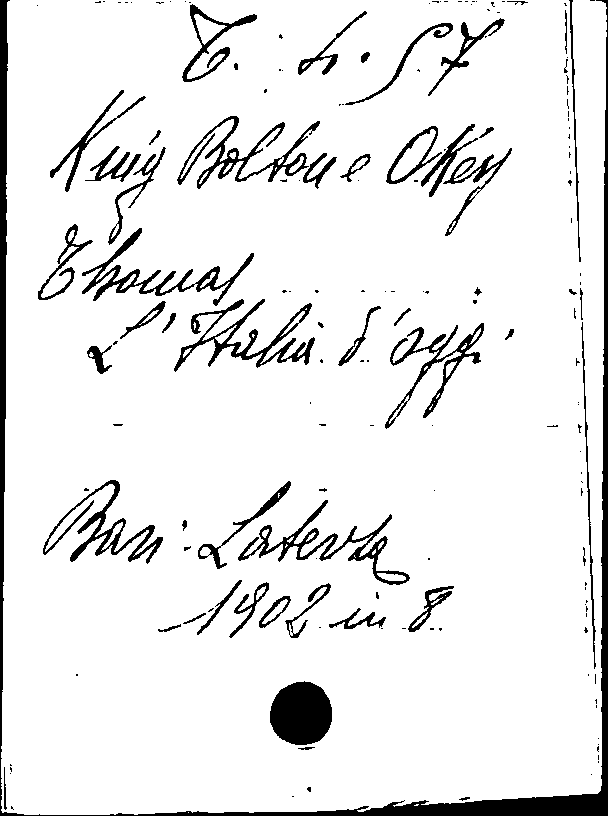 T. 4. 57
King Bolton e Okey
Thomas
L'Italia d'oggi
Bari Laterza
1902 in 8